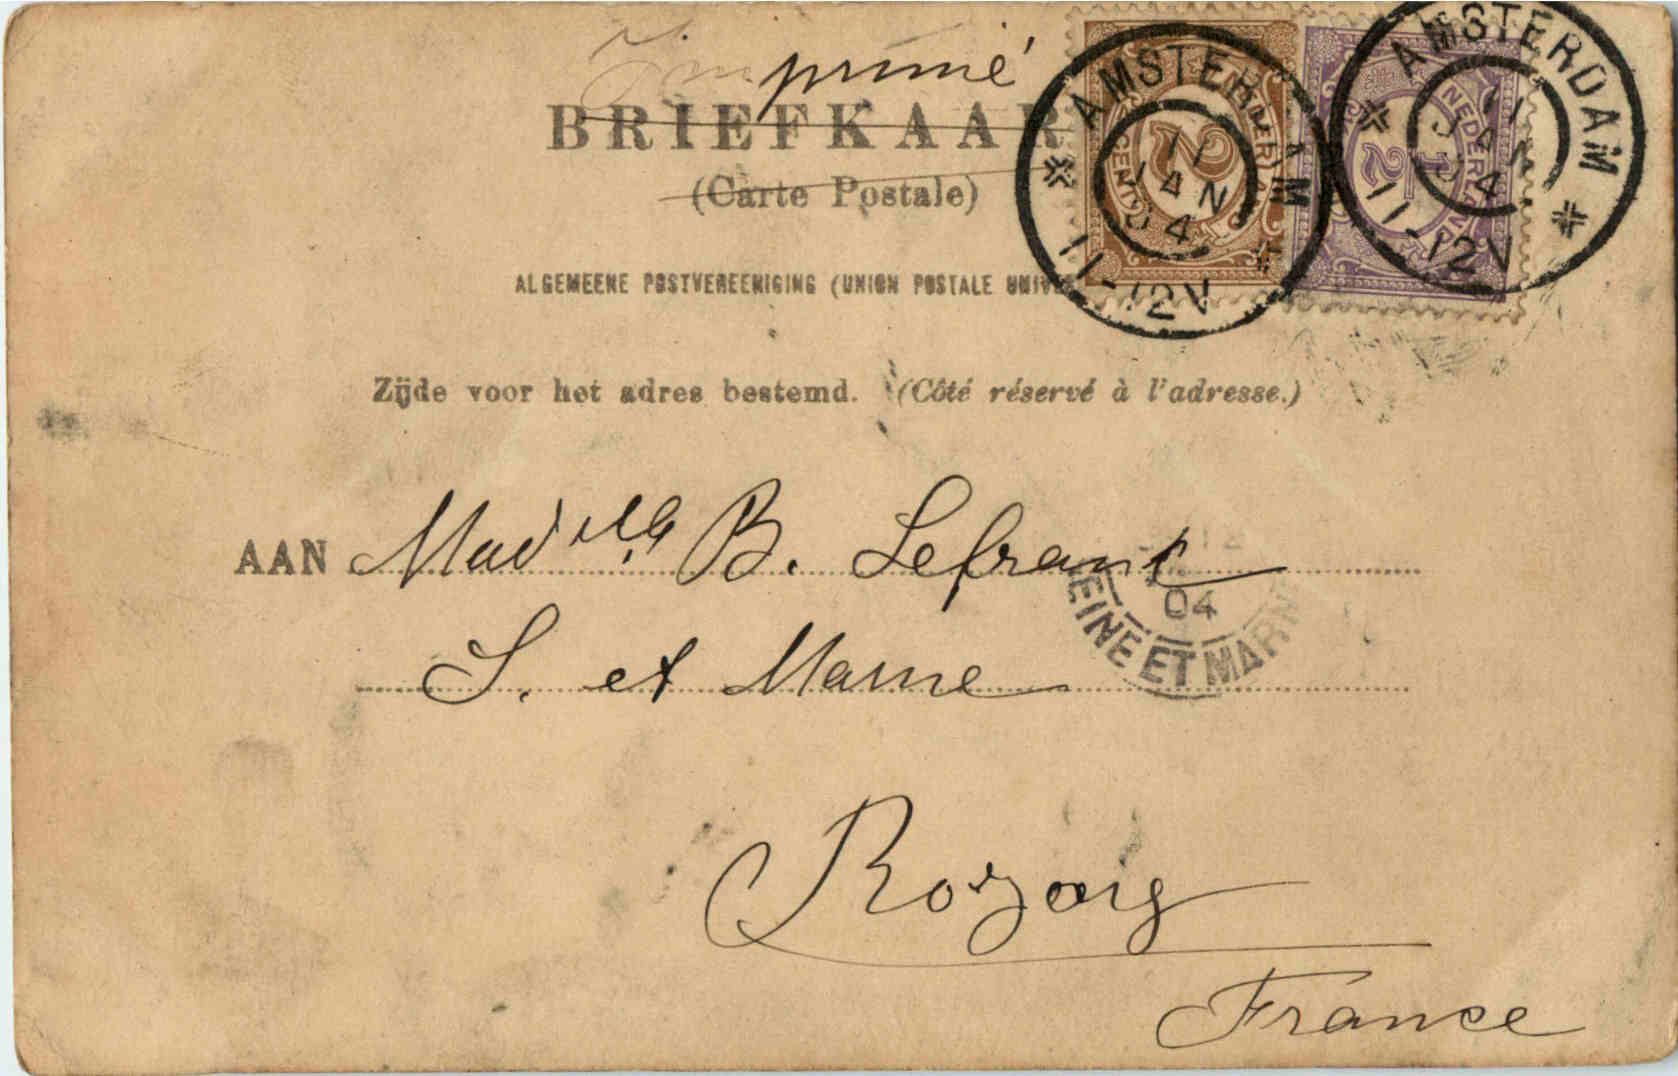 Imprimé
BRIEFKAAR
(Carte Postale)
ALGEMEENE POSTVEREENIGING (UNION POSTALE UNIVE
Zijde voor het adres bestemd. (Côté réservé à l'adresse.)
AMSTERDAM
11
JAN
04
11-12V
NEDERLAND
2
CENT
AMSTERDAM
11
JAN
04
11-12V
NEDERLAND
1/2
AAN Mad^elle B. Lefranc
S. et Marne
04
EINE ET MARN
Rozoy
France